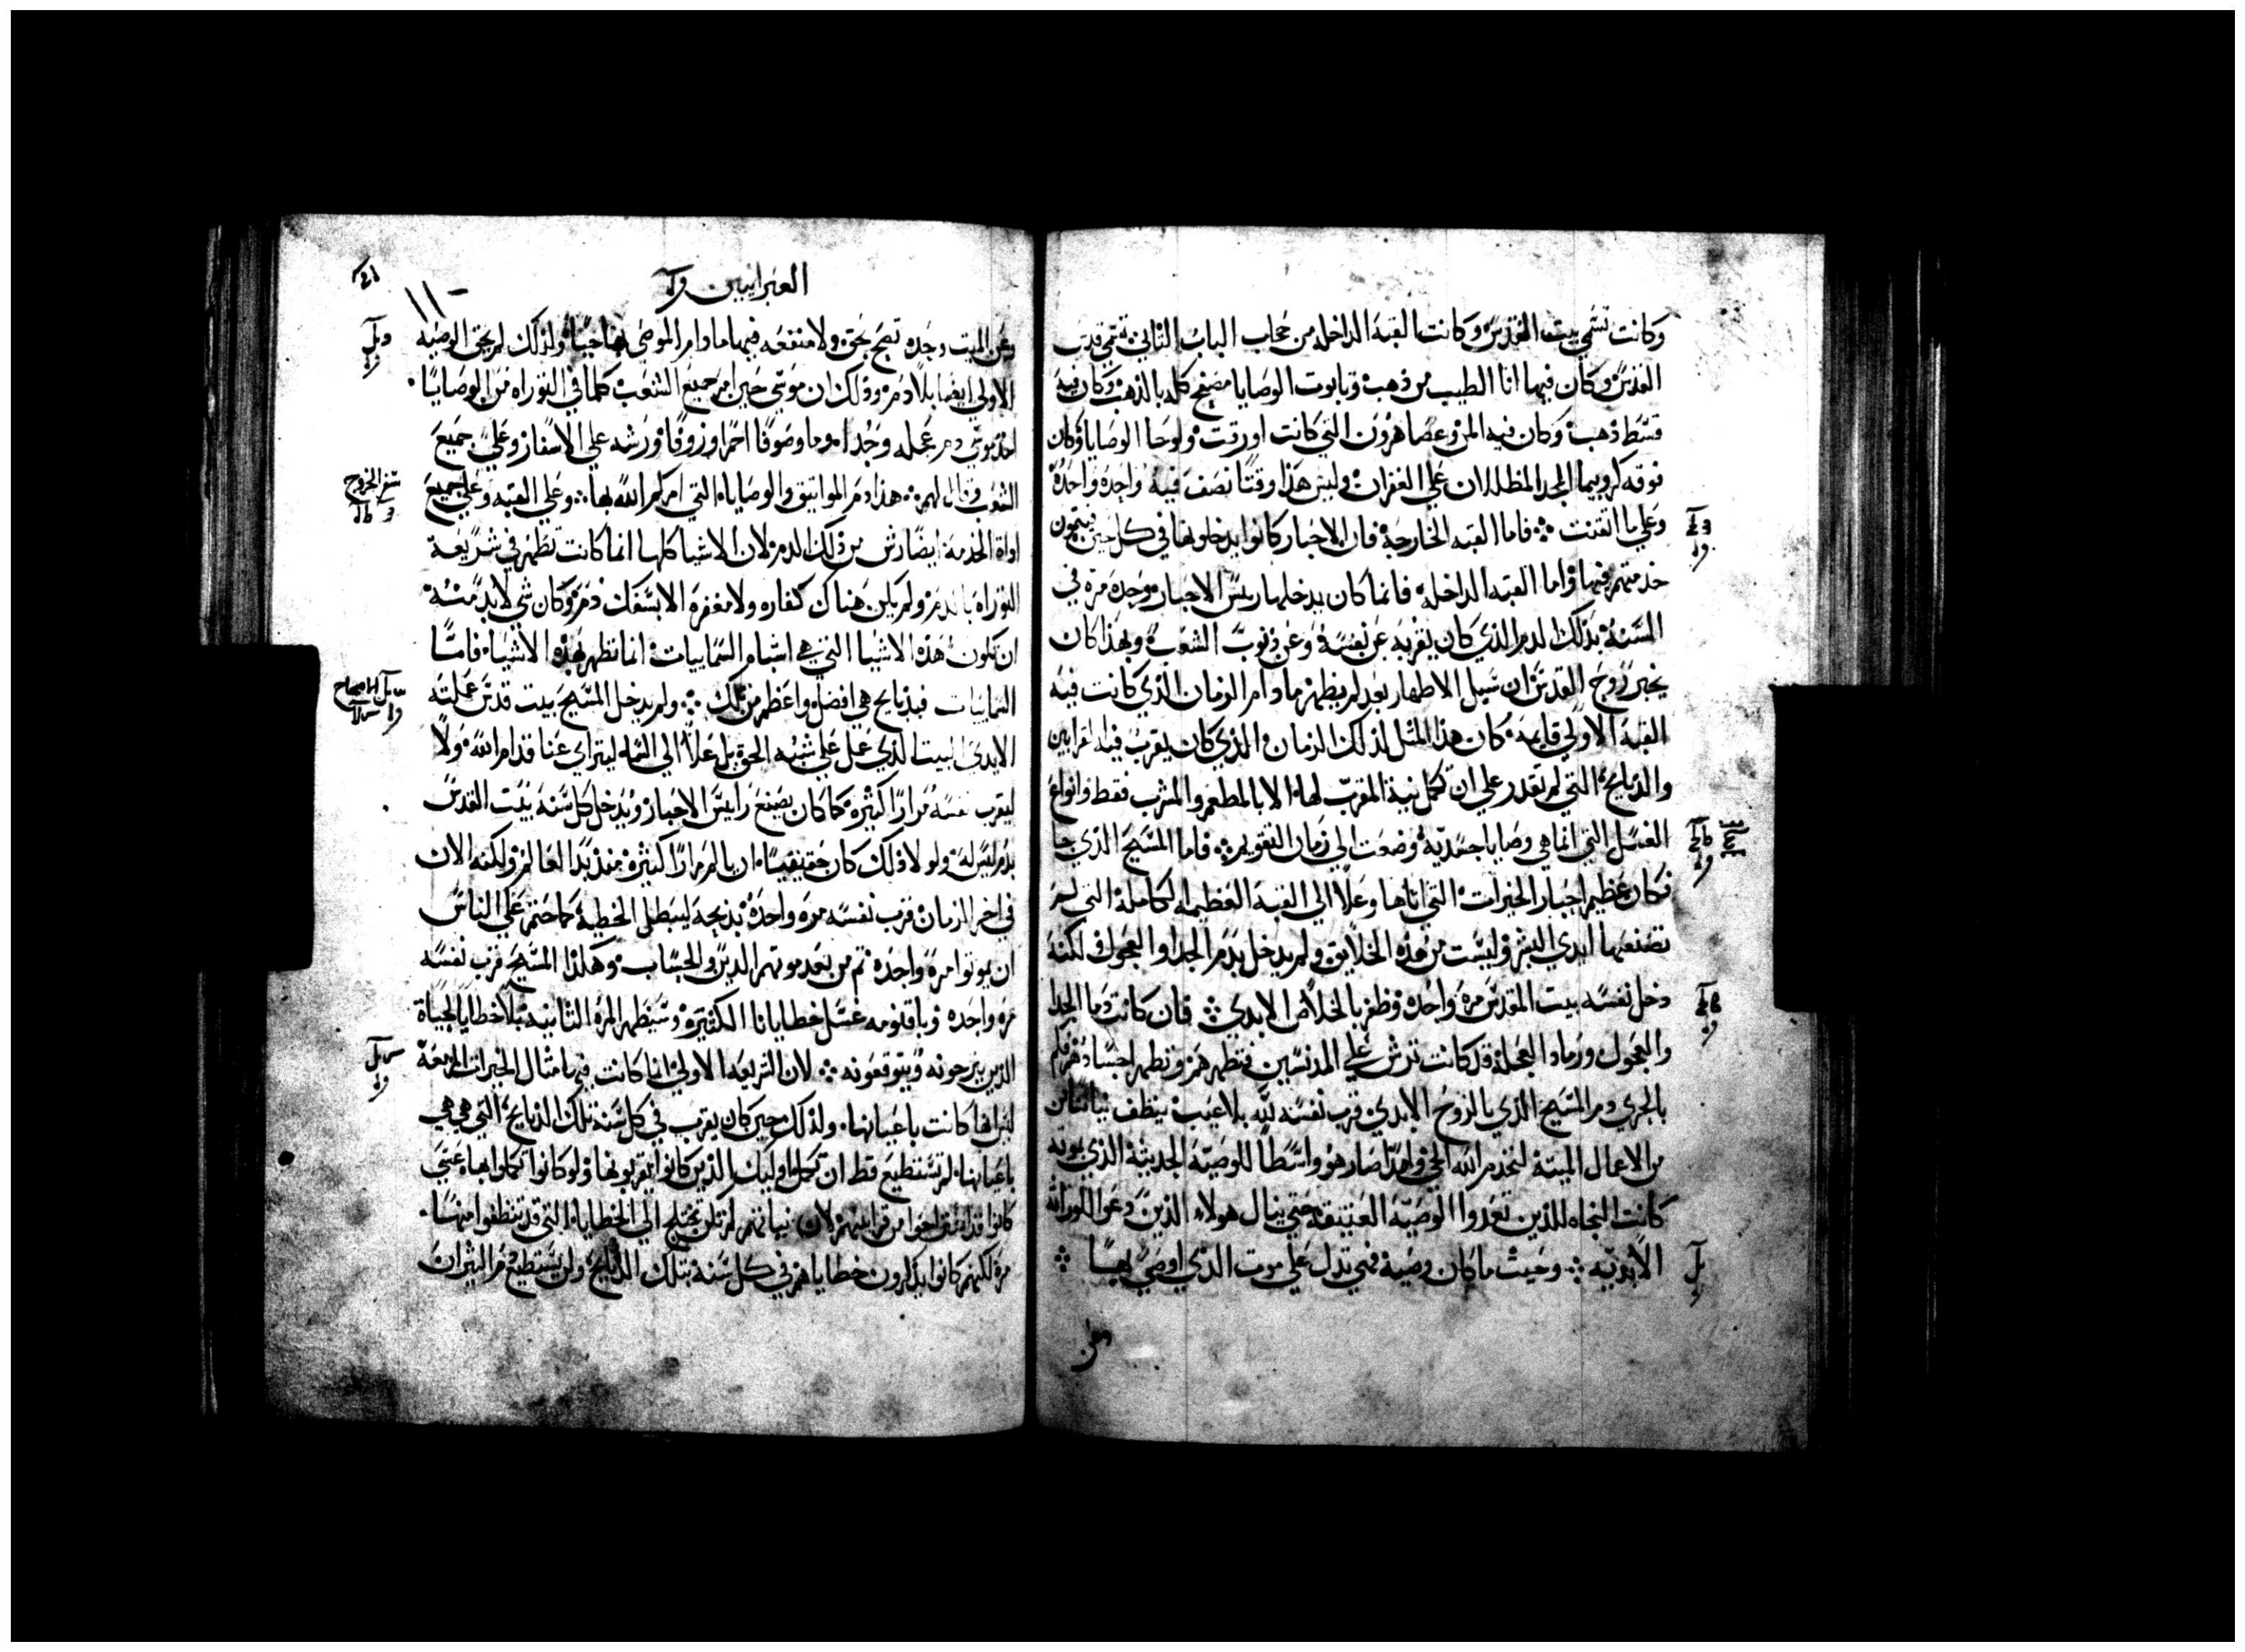 وكانت تسمي بيت القدس وكانت القبه الداخله من حجاب الباب الثاني تسمي قدس
القدس وكان فيها انا الطيب من ذهب وتابوت الوصايا مصفح كله بالذهب وكان فيه
قسط ذهب وكان فيه المن وعصا هرون التي كانت اورقت ولوحا الوصايا وكان
فوقه كاروبيما المجد المظللان علي الغفران وليس هذا وقتا نصف فيه واحده واحده
وعلي ما اتقنت فاما القبه الخارجة فان الاحبار كانوا يدخلونها في كل حين فيتمون
خدمتهم فيها واما القبه الداخله فانما كان يدخلها ريس الاحبار وحده مرة في
السنة بذلك الدم الذي كان يقربه عن نفسه وعن ذنوب الشعب وبهذا كان
يخبر روح القدس ان سبيل الاطهار بعد لم يظهر ما دام الزمان الذي كانت فيه
القبه الاولي قايمه كان هذا المثل لذلك الزمان الذي كان يقرب فيه القرابين
والذبايح التي لم تقدر علي ان تكمل نية المقرب لها الا بالمطعم والمشرب فقط وانواع
الغسل التي انما هي وصايا جسدية وضعت الي زمان التقويم فاما المسيح الذي جا
فكان عظيم احبار الخيرات التي اتاها وعلا الي القبة العظيمه الكامله التي لم
تصنعها ايدي البشر وليست من هذه الخلايق ولم يدخل بدم الجدا والعجول لكنه
دخل نفسه بيت المقدس مرة واحده وظفر بالخلاص الابدي فان كانت دما الجدا
والعجول ورماد العجلة قد كانت ترش علي المدنسين فتطهرهم وتطهر اجسادهم فكم
بالحري دم المسيح الذي بالروح الابدي قرب نفسه لله بلا عيب ينظف نياتنا من
من الاعمال الميتة لنخدم الله الحي ولهذا صار هو واسطا للوصية الجديثة الذي بموته
كانت النجاه للذين تعدوا الوصية العتيقة حتي ينال هولاء الذين دعوا للوراثه
الابديه وحيث ما كان وصية فهي تدل علي موت الذي اوصي بها
وعن
العبرانيين
وعن الميت وحده تصح بحق ولا منفعه فيها ما دام الموصي بها حيا ولذلك لم يحق الوصيه
الاولي ايضا بلا دم وذلك ان موسي حين امر جميع الشعب كلما في التوراه من الوصايا
اخذ موسي دم عجله وجدا وما وصوفا احمرا وزوفا ورشه علي الاسفار وعلي جميع
الشعب وقال لهم هذا دم المواثيق والوصايا التي امركم الله بها وعلي القبه وعلي جميع
اواة الخدمة ايضا رش من ذلك الدم لان الاشيا كلها انما كانت تطهر في شريعة
التوراه بالدم ولم يكن هناك كفاره ولا مغفرة الا بسفك دم وكان شي لابد منه
ان تكون هذه الاشيا التي هي اشباه السماييات انما تطهر بهذه الاشياء فاما
السماييات فبذبايح هي افضل واعظم من تلك ولم يدخل المسيح بيت قدس عملته
الايدي البيت الذي عمل علي شبه الحق بل علا الي السماء ليتراي عنا قدام الله ولا
ليقرب نفسه مرارا كثيرة كما كان يصنع راييس الاحبار ويدخل كل سنة بيت القدس
بدم ليس له ولولا ذلك كان حقيقيا ان يالم مرارا كثيرة منذ بدا العالم ولكنه الان
في اخر الزمان قرب نفسه مرة واحدة بذبيحة ليبطل الخطية كما حتم علي الناس
ان يموتوا مرة واحدة ثم من بعد موتهم الدين والحساب وهكذا المسيح قرب نفسه
مره واحده وباقنومه غسل خطايانا الكثيرة وسيظهر المرة الثانيه بلا خطايا لحياة
الذين يرجونه ويتوقعونه لان الشريعه الاولي انما كانت فيها مثال الخيرات المزمعة
ليس انها كانت باعيانها ولذلك حين كان يقرب في كل سنة تلك الذبايح التي هي هي
باعيانها لم تستطيع قط ان تكمل اوليك الذين كانوا يقربونها ولو كانوا تكملوا بها عيسي
كانوا قد استراحوا من قرابينهم لان نياتهم لم تكن تختلج الي الخطايا التي قد تنظفوا منها
مرة لكنهم كانوا يذكرون خطاياهم في كل سنة بتلك الذبايح ولن يستطيع دم الثيران
سفر الخروج